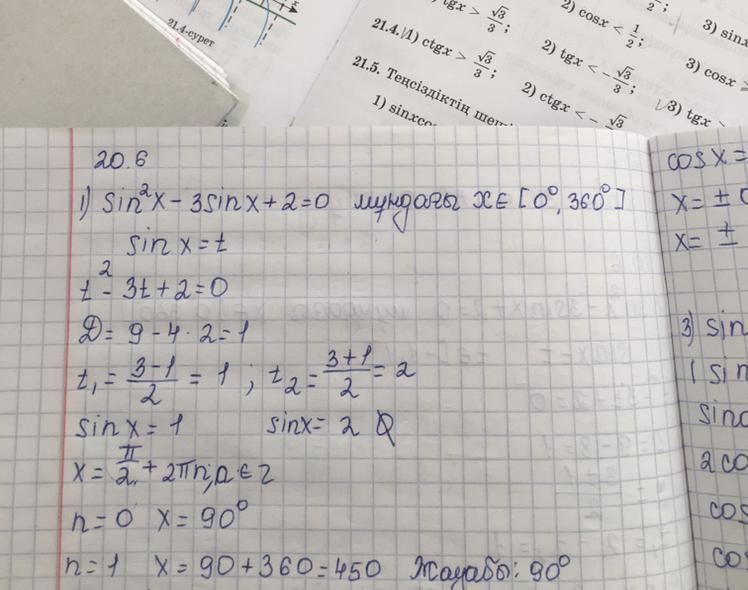 21.4-сурет
tgx > √3/3; 2) cosx < 1/2; 3) sinx
21.4. 1) ctgx > √3/3; 2) tgx < -√3/3; 3) cosx >
21.5. Теңсіздіктің
1) sinxcos 2) ctgx < -√3 3) tgx >
20.6
1) sin²x - 3sinx + 2 = 0 мұндағы x ∈ [0°, 360°]
sin x = t
t² - 3t + 2 = 0
D = 9 - 4 · 2 = 1
t₁ = (3-1)/2 = 1 ; t₂ = (3+1)/2 = 2
sin x = 1 sinx = 2 ∅
x = π/2 + 2πn, n ∈ z
n = 0 x = 90°
n = 1 x = 90 + 360 = 450 Жауабы: 90°
cos x =
x = ±
x = ±
3) sin
sin
2co
cos
cos